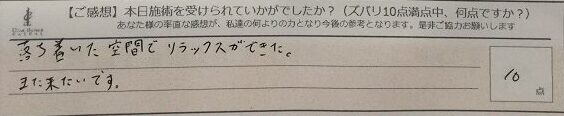 【ご感想】本日施術を受けられていかがでしたか？（ズバリ10点満点中、何点ですか？）
あなた様の率直な感想が、私達の何よりの力となり今後の参考となります。是非ご協力お願いします
落ち着いた空間でリラックスができた。
また来たいです。
10
点